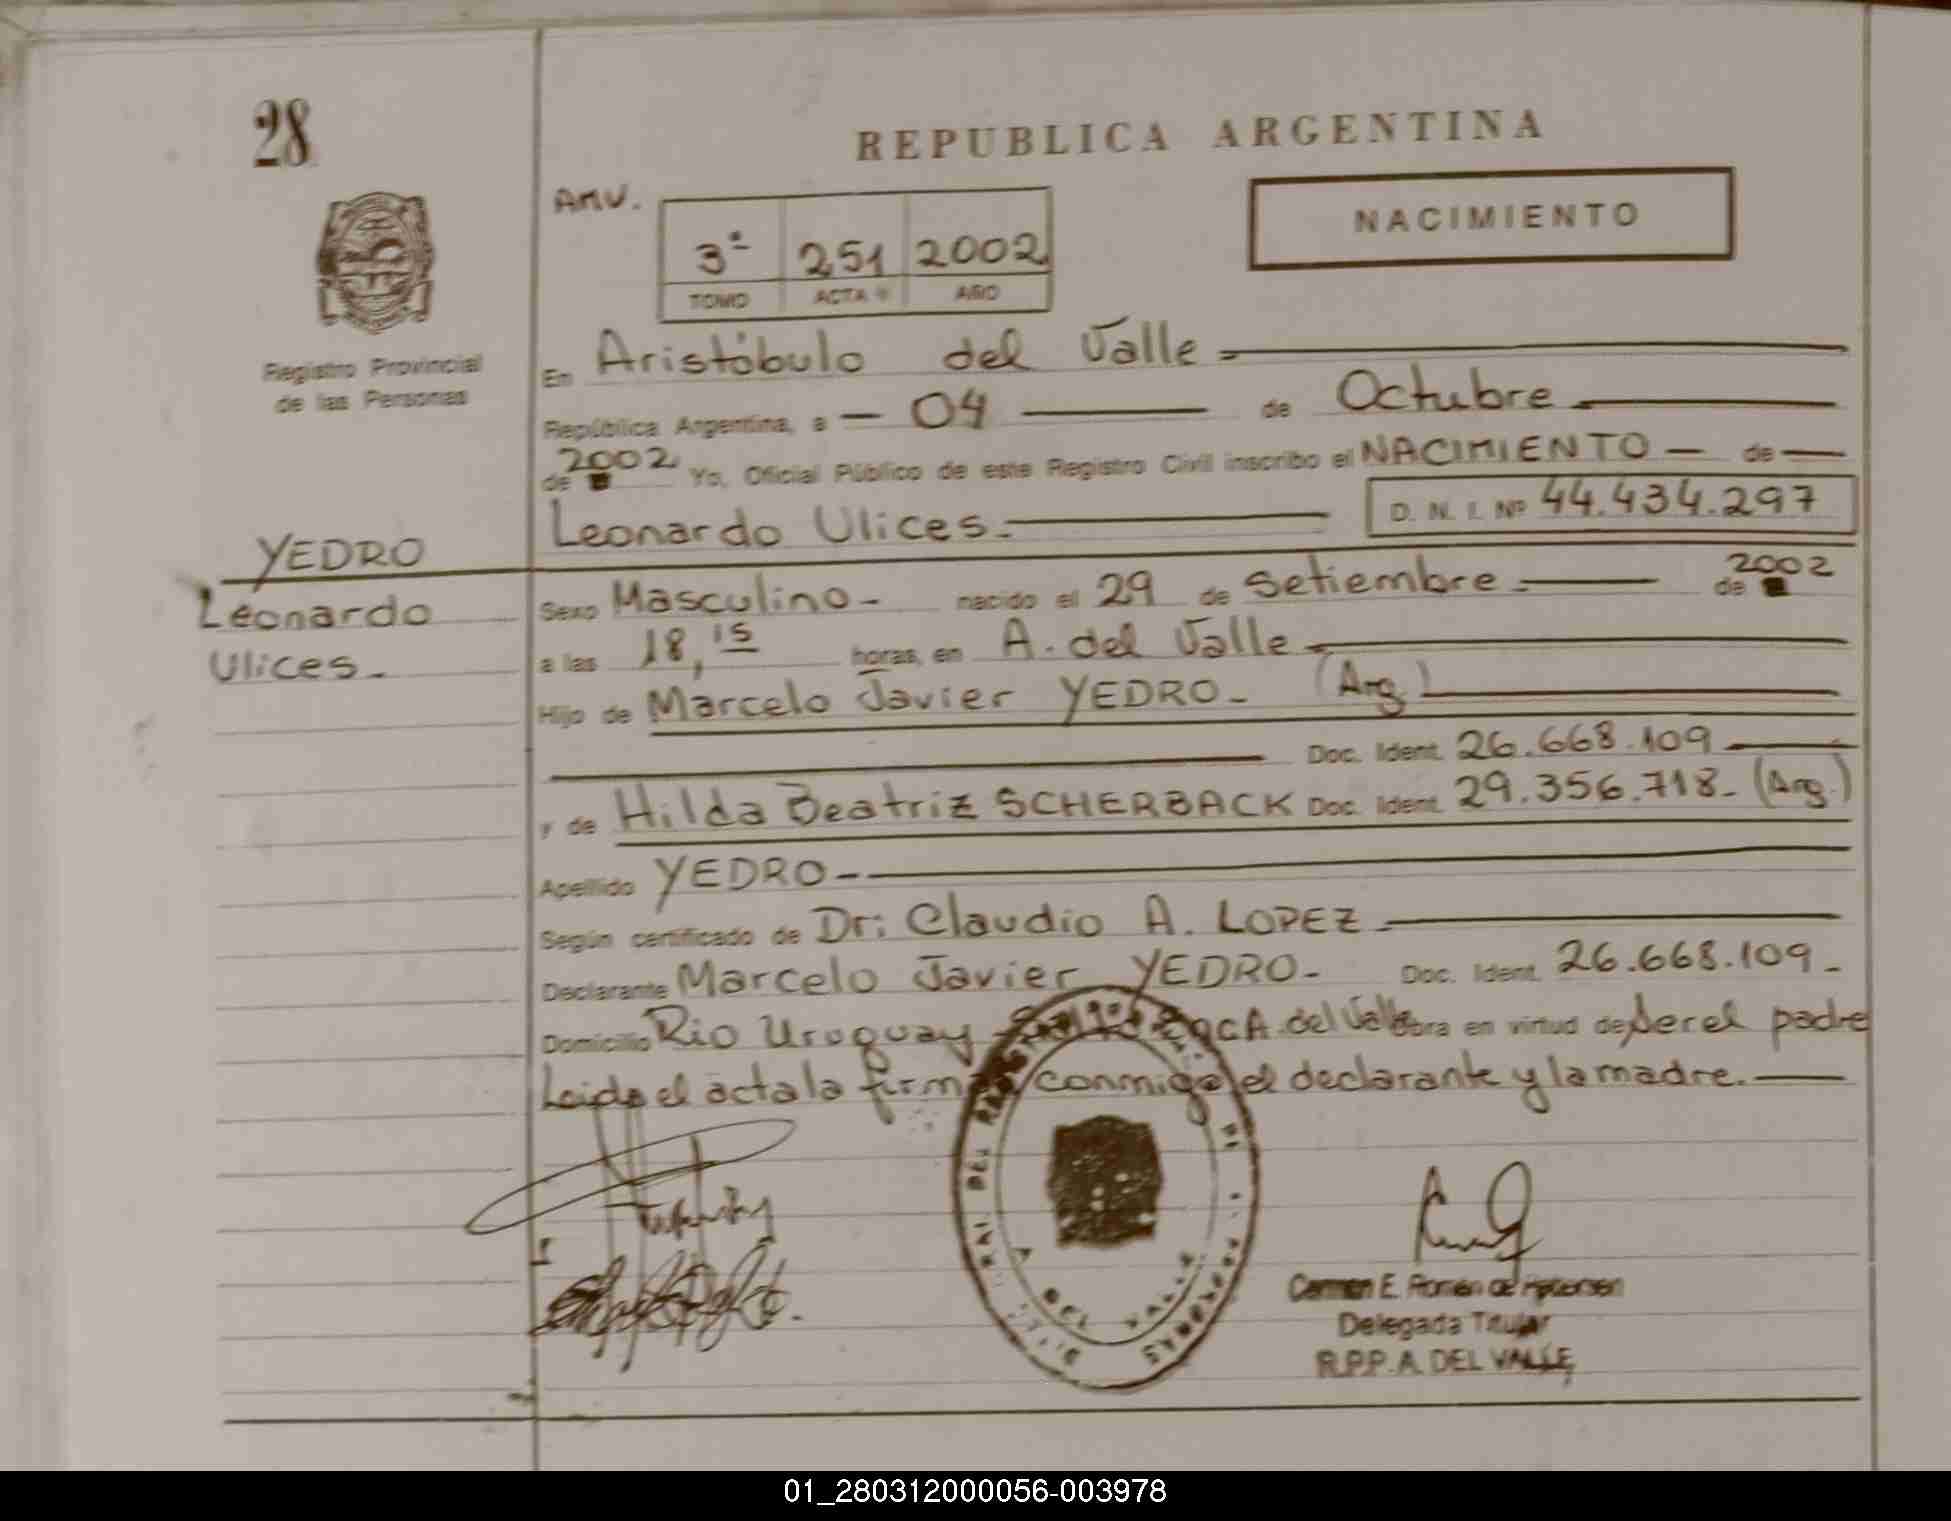 28
REPUBLICA ARGENTINA
AMV.
NACIMIENTO
3ª 251 2002
TOMO ACTA Nº AÑO
Registro Provincial
de las Personas
En Aristóbulo del Valle
República Argentina, a 04 de Octubre
de 2002 Yo, Oficial Público de este Registro Civil inscribo el NACIMIENTO de
Leonardo Ulices. D. N. I. Nº 44.434.297
YEDRO
Leonardo
Ulices.
Sexo Masculino nacido el 29 de Setiembre de 2002
a las 18,15 horas, en A. del Valle
Hijo de Marcelo Javier YEDRO (Arg.)
Doc. Ident. 26.668.109
y de Hilda Beatriz SCHERBACK Doc. Ident. 29.356.718 (Arg.)
Apellido YEDRO
Según certificado de Dr: Claudio A. LOPEZ
Declarante Marcelo Javier YEDRO Doc. Ident. 26.668.109
Domicilio Rio Uruguay A. del Valle obra en virtud de ser el padre
Leida el acta la firma conmigo el declarante y la madre.
A DEL VALLE
PERSONAS
Carmen E. de
Delegada Titular
R.P.P. A. DEL VALLE
01_280312000056-003978